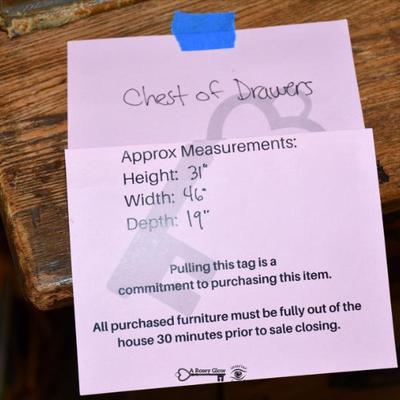 Chest of Drawers
Approx Measurements:
Height: 31"
Width: 46"
Depth: 19"
Pulling this tag is a
commitment to purchasing this item.
All purchased furniture must be fully out of the
house 30 minutes prior to sale closing.
A Rosey Glow